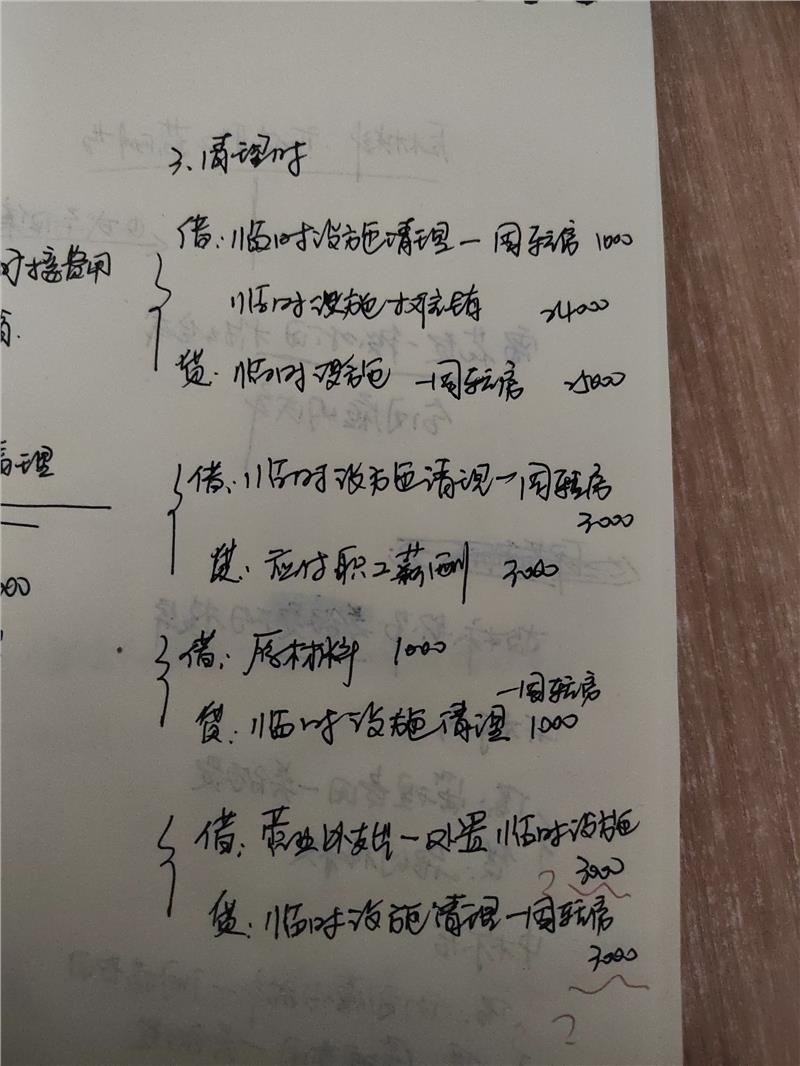 3、清理时
借:临时设施清理—周转房 1000
对接费用
临时设施摊销 24000
贷:临时设施 —周转房 25000
清理
借:临时设施清理—周转房
3000
贷:应付职工薪酬 3000
借:原材料 1000
—周转房
贷:临时设施清理 1000
借:营业外支出—处置临时设施
3000
?
贷:临时设施清理—周转房
3000
?